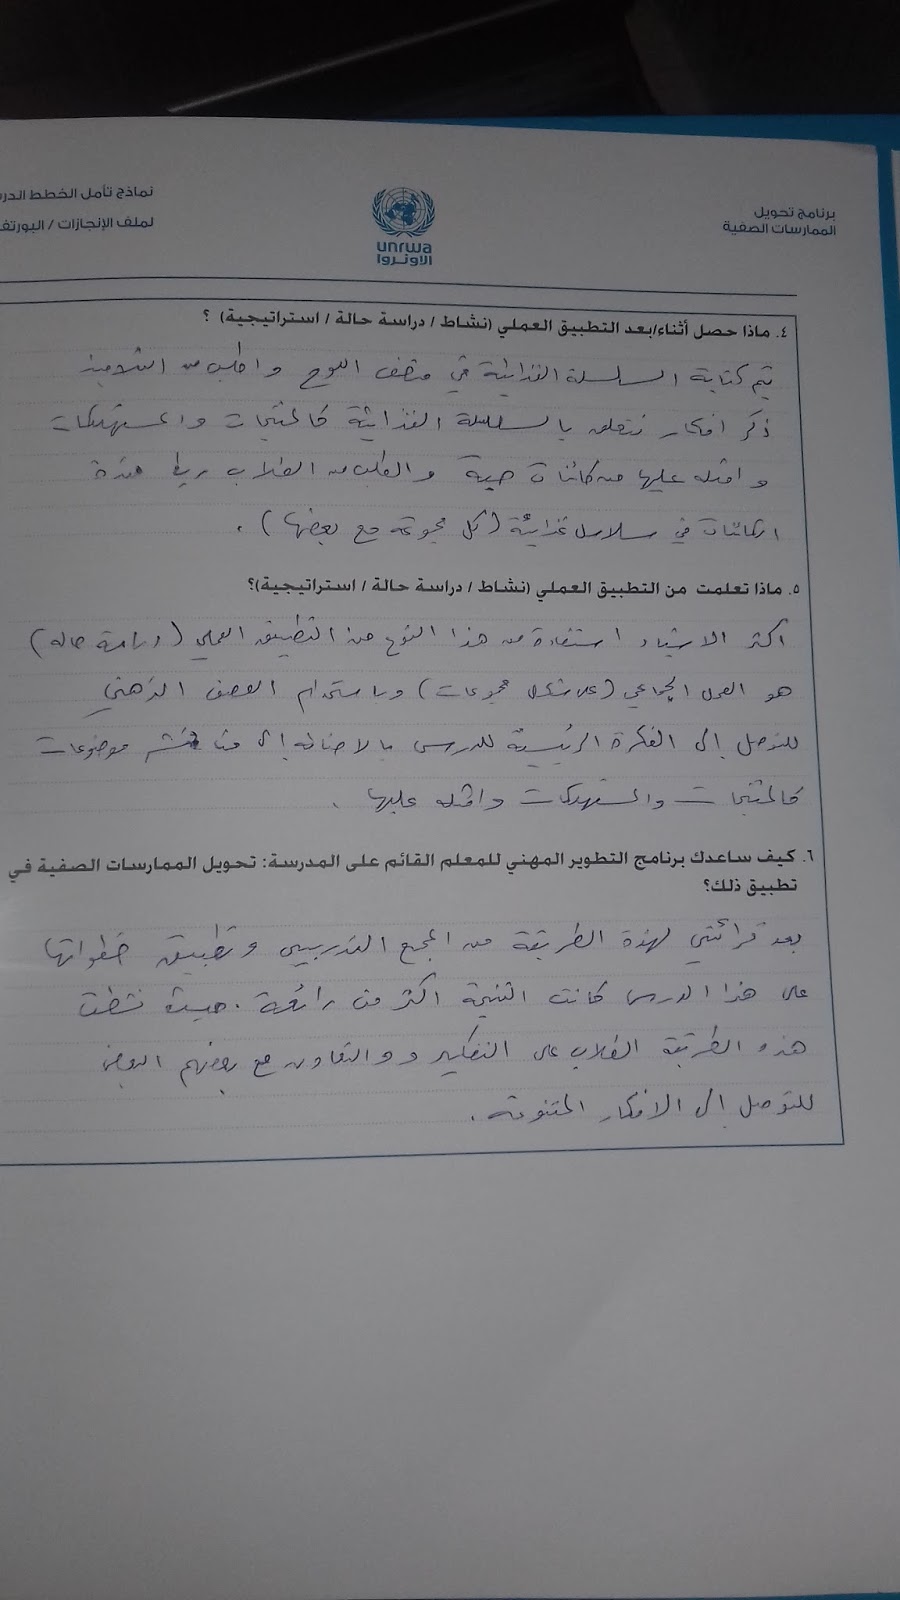 برنامج تحويل
الممارسات الصفية
unrwa
الاونروا
نماذج تأمل الخطط الدر
لملف الإنجازات / البورتف
٤. ماذا حصل أثناء/بعد التطبيق العملي (نشاط / دراسة حالة / استراتيجية) ؟
يتم كتابة السلسلة الغذائية في منتصف اللوح واطلب من التلاميذ
ذكر افكار تتعلق بالسلسلة الغذائية كالمنتجات والمستهلكات
وامثله عليها من كائنات حية والطلب من الطلاب ربط هذة
الكائنات في سلاسل غذائية (كل مجموعة مع بعضها) .
٥. ماذا تعلمت من التطبيق العملي (نشاط / دراسة حالة / استراتيجية)؟
اكثر الاشياء استفادة من هذا النوع من التطبيق العملي (دراسة حاله)
هو العمل الجماعي (على شكل مجموعات) وباستخدام العصف الذهني
للتوصل إلى الفكرة الرئيسية للدرس بالاضافة الى موضوعات
كالمنتجات والمستهلكات وامثله عليها .
٦. كيف ساعدك برنامج التطوير المهني للمعلم القائم على المدرسة: تحويل الممارسات الصفية في
تطبيق ذلك؟
بعد قرائتي لهذة الطريقة من المجمع التدريبي وتطبيق خطواتها
على هذا الدرس كانت النتيجة اكثر من رائعة . حيث نشطت
هذه الطريقة الطلاب على التفكير و والتعاون مع بعضهم البعض
للتوصل إلى الافكار المتنوعة .